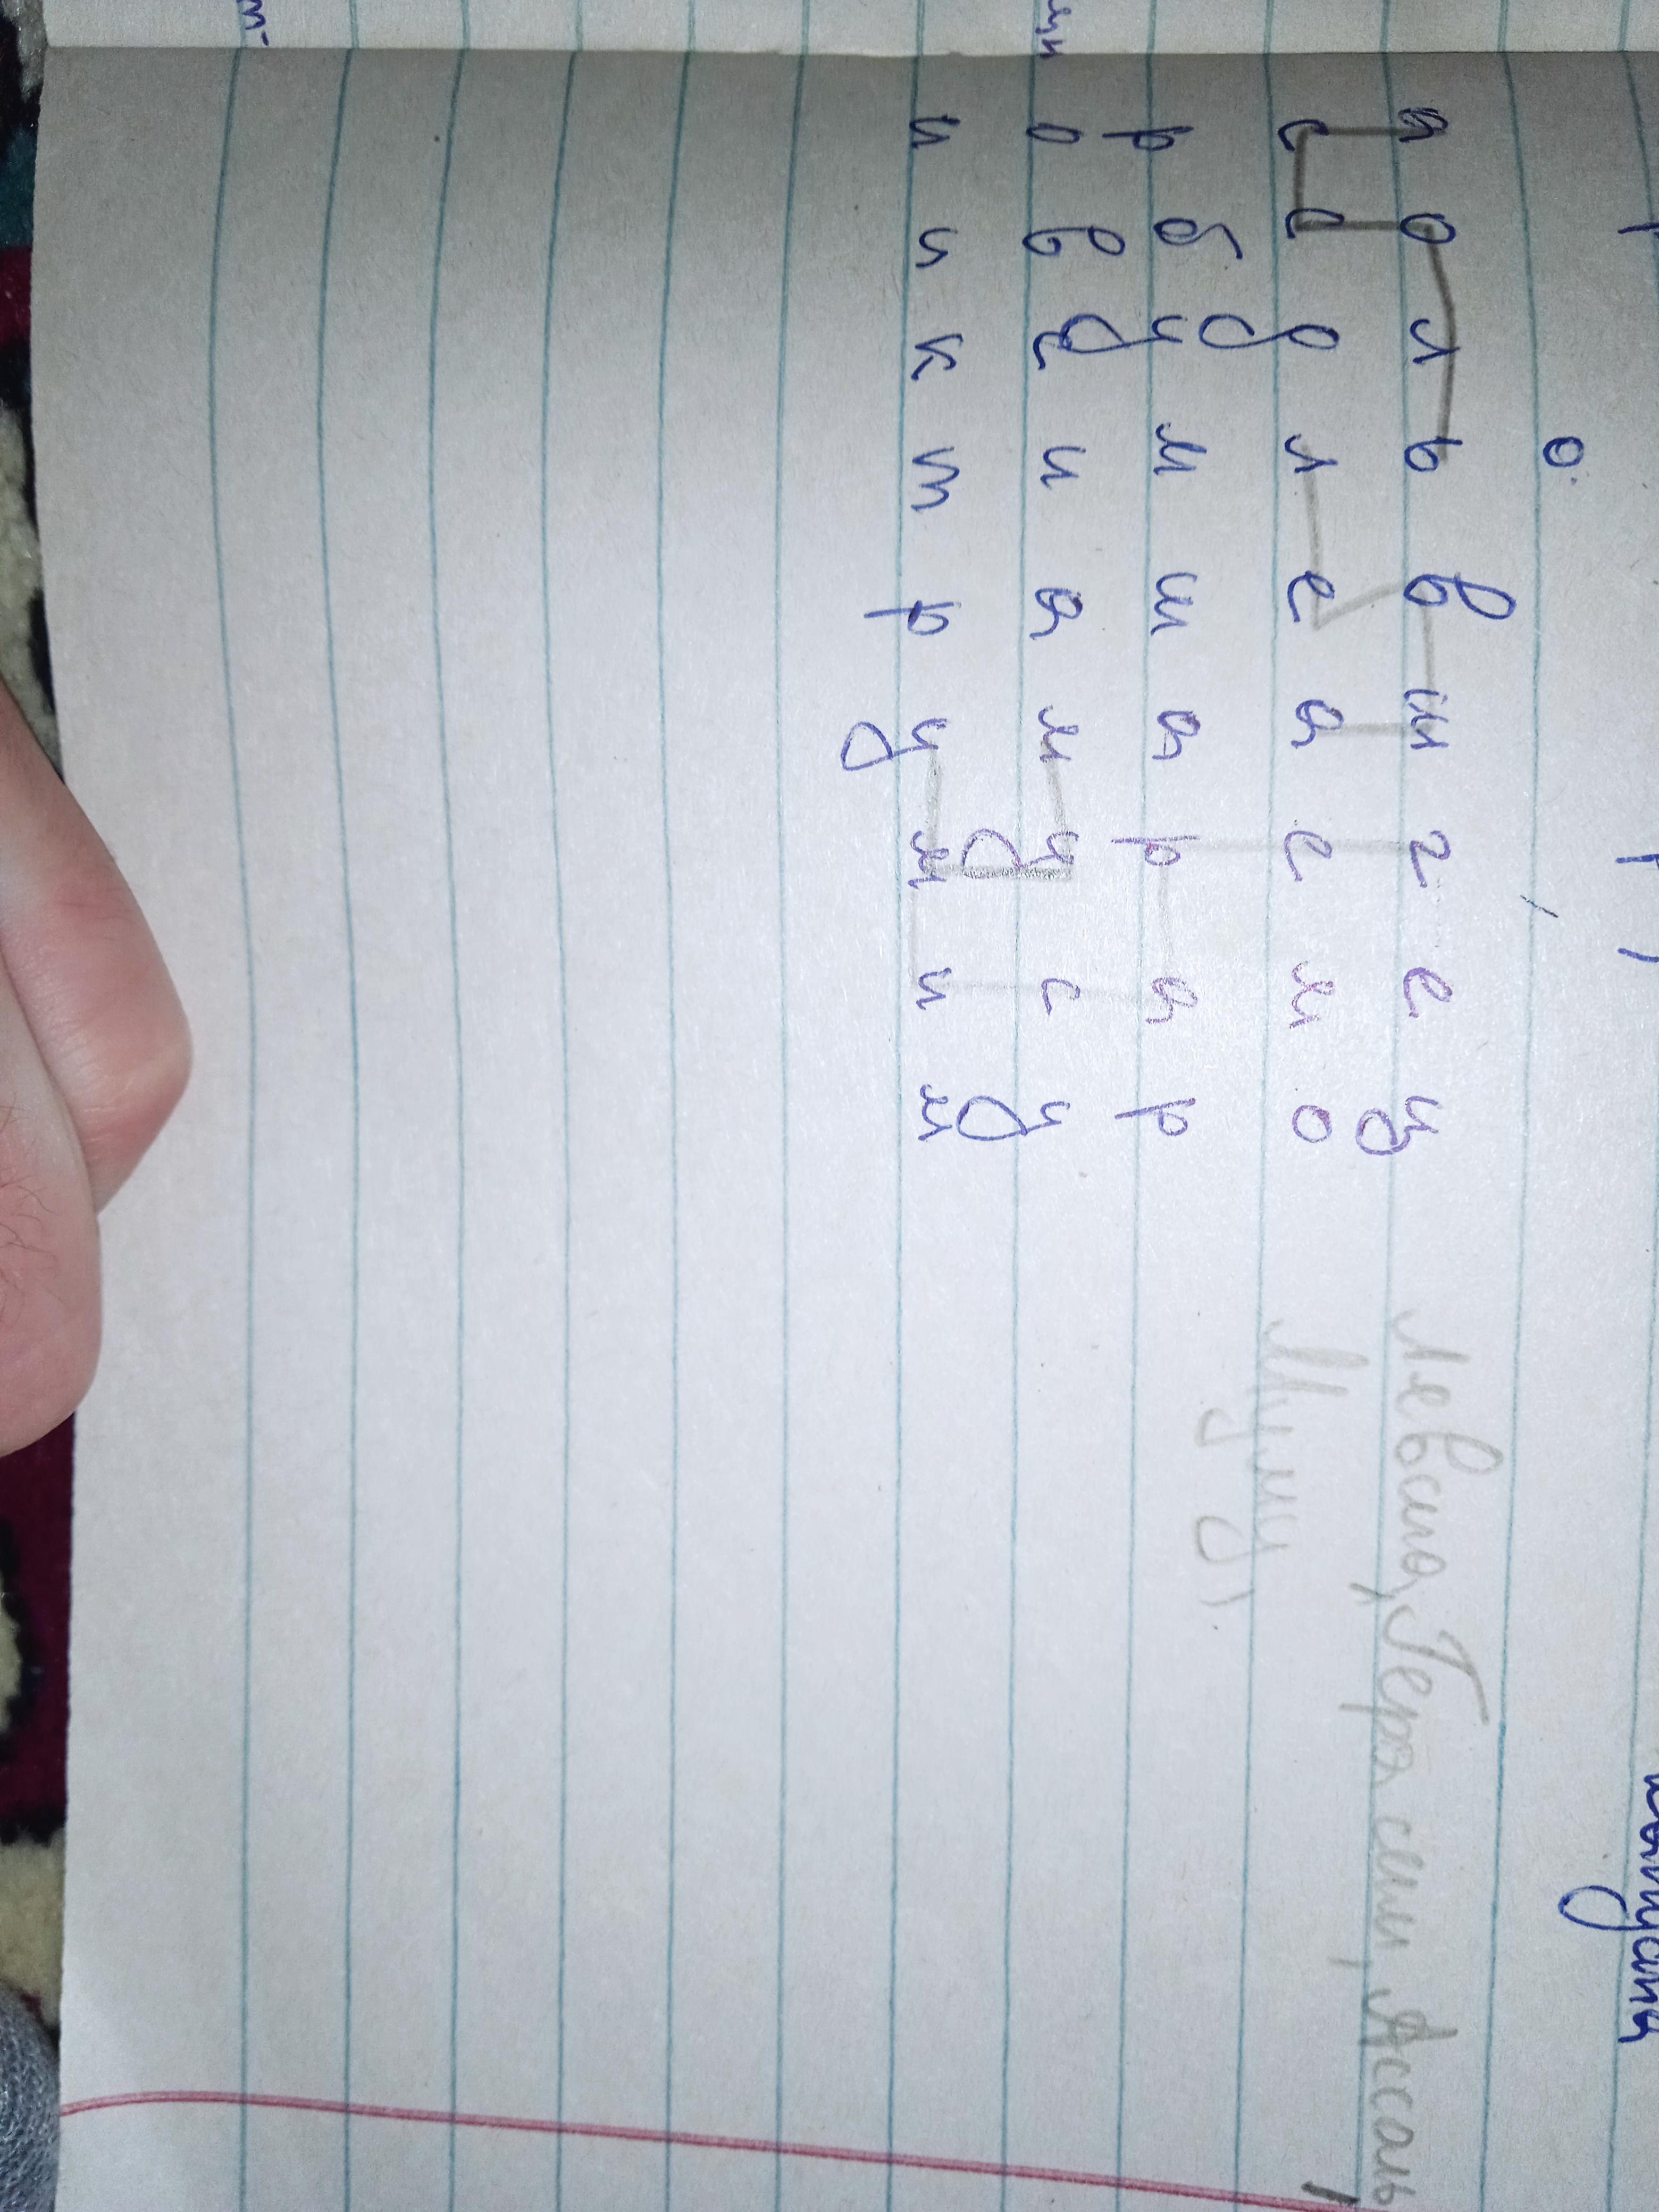 о
а о л ь в ш г е ц Левша, Герасим, Ассоль
с с д л е а е м о Муму
р б у м ш а р а р
о в е и а м у с у
и и к т р у м и м